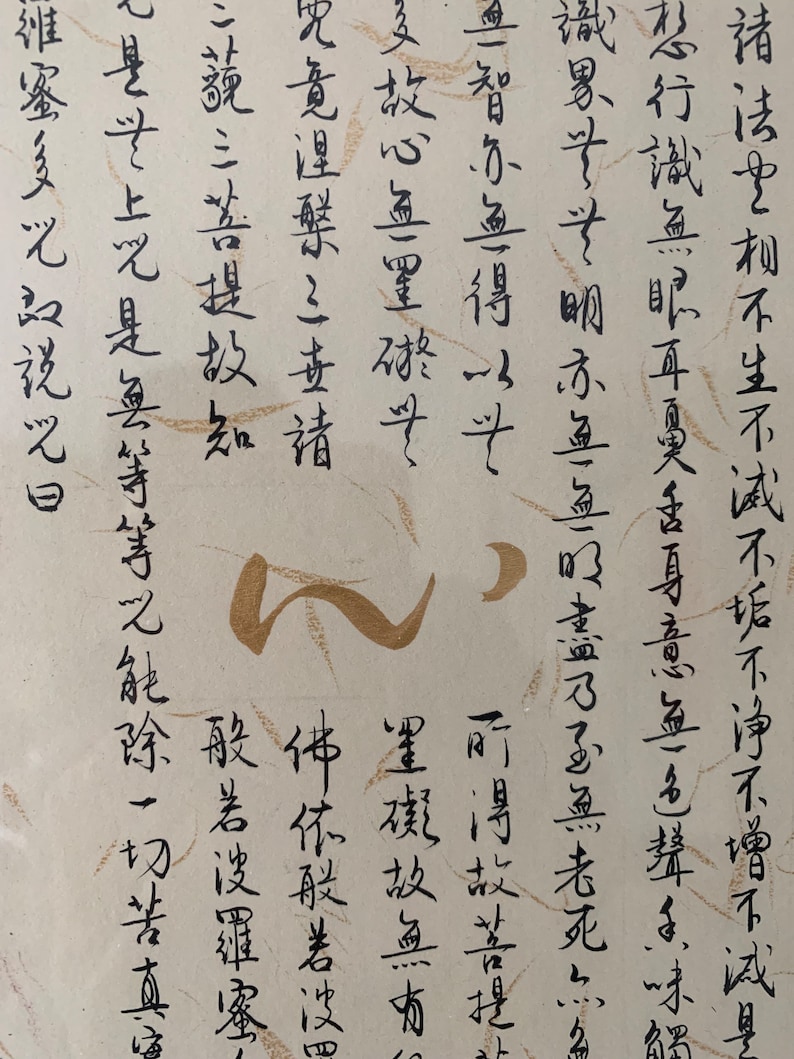 諸法空相不生不滅不垢不淨不增不減是
想行識無眼耳鼻舌身意無色聲香味觸
識界無無明亦無無明盡乃至無老死亦無
無智亦無得以無
所得故菩提
多故心無罣礙無
罣礙故無有
究竟涅槃三世諸
佛依般若波羅
三藐三菩提故知
般若波羅蜜
心
咒是無上咒是無等等咒能除一切苦真實
羅蜜多咒即說咒曰